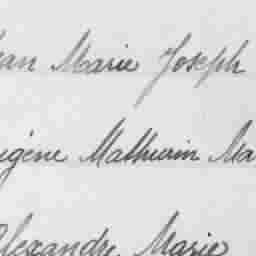 ean Marie Joseph
ugène Mathurin Ma
Alexandre Marie